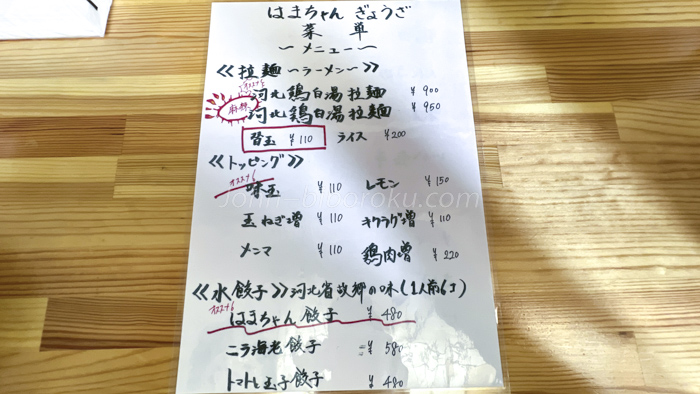 はまちゃん ぎょうざ
菜 単
〜メニュー〜
≪拉麺 〜ラーメン〜≫
オススメ!
河北鶏白湯拉麺 ¥900
麻辣 河北鶏白湯拉麺 ¥950
替玉 ¥110 ライス ¥200
≪トッピング≫
オススメ!
味玉 ¥110 レモン ¥150
玉ねぎ増 ¥110 キクラゲ増 ¥110
メンマ ¥110 鶏肉増 ¥220
≪水餃子≫ 河北省故郷の味(1人前6コ)
オススメ!
はまちゃん餃子 ¥480
ニラ海老餃子 ¥580
トマトと玉子餃子 ¥480